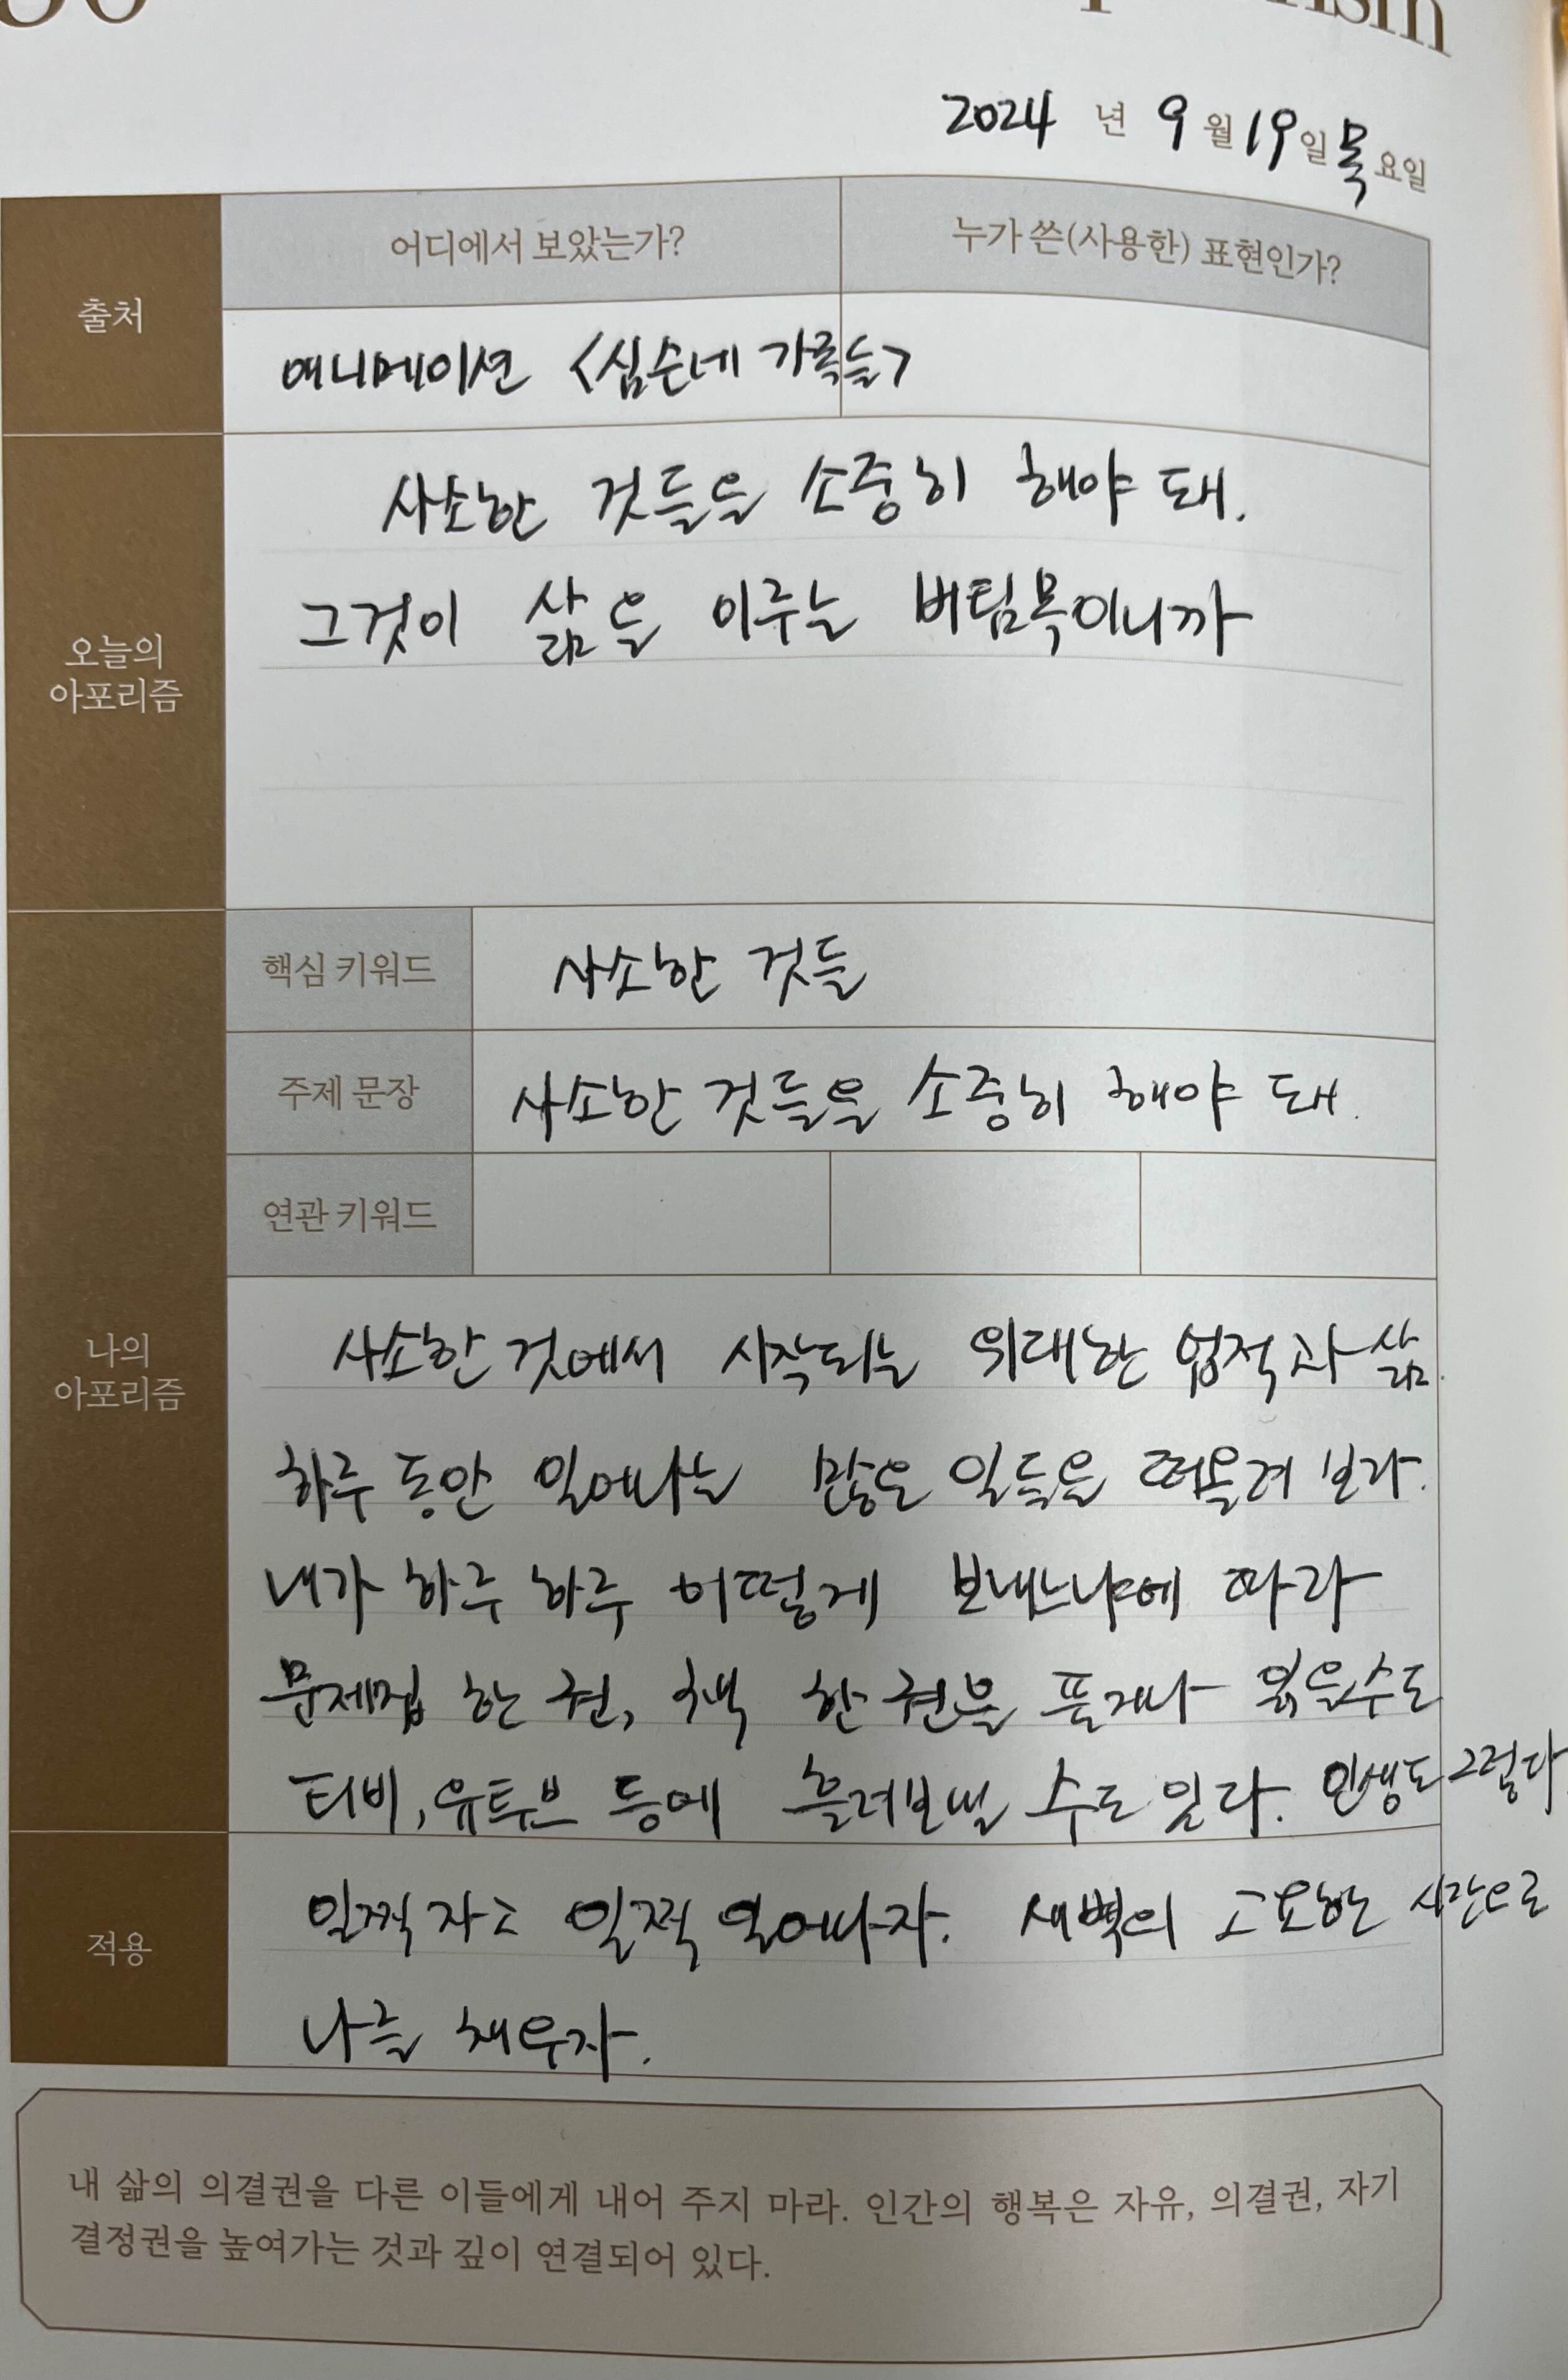 2024 년 9 월 19 일 목 요일
어디에서 보았는가? 누가 쓴(사용한) 표현인가?
출처
애니메이션 <심슨네 가족들>
사소한 것들을 소중히 해야 돼.
그것이 삶을 이루는 버팀목이니까
오늘의
아포리즘
핵심 키워드 사소한 것들
주제 문장 사소한 것들을 소중히 해야 돼.
연관 키워드
나의
아포리즘
사소한 것에서 시작되는 위대한 업적과 삶.
하루 동안 일어나는 많은 일들을 떠올려 보라.
내가 하루 하루 어떻게 보내느냐에 따라
문제집 한 권, 책 한 권을 풀거나 읽을수도
티비, 유튜브 등에 흘려보낼 수도 있다. 인생도 그렇다
적용
일찍 자고 일찍 일어나자. 새벽의 고요한 시간으로
나를 채우자.
내 삶의 의결권을 다른 이들에게 내어 주지 마라. 인간의 행복은 자유, 의결권, 자기
결정권을 높여가는 것과 깊이 연결되어 있다.